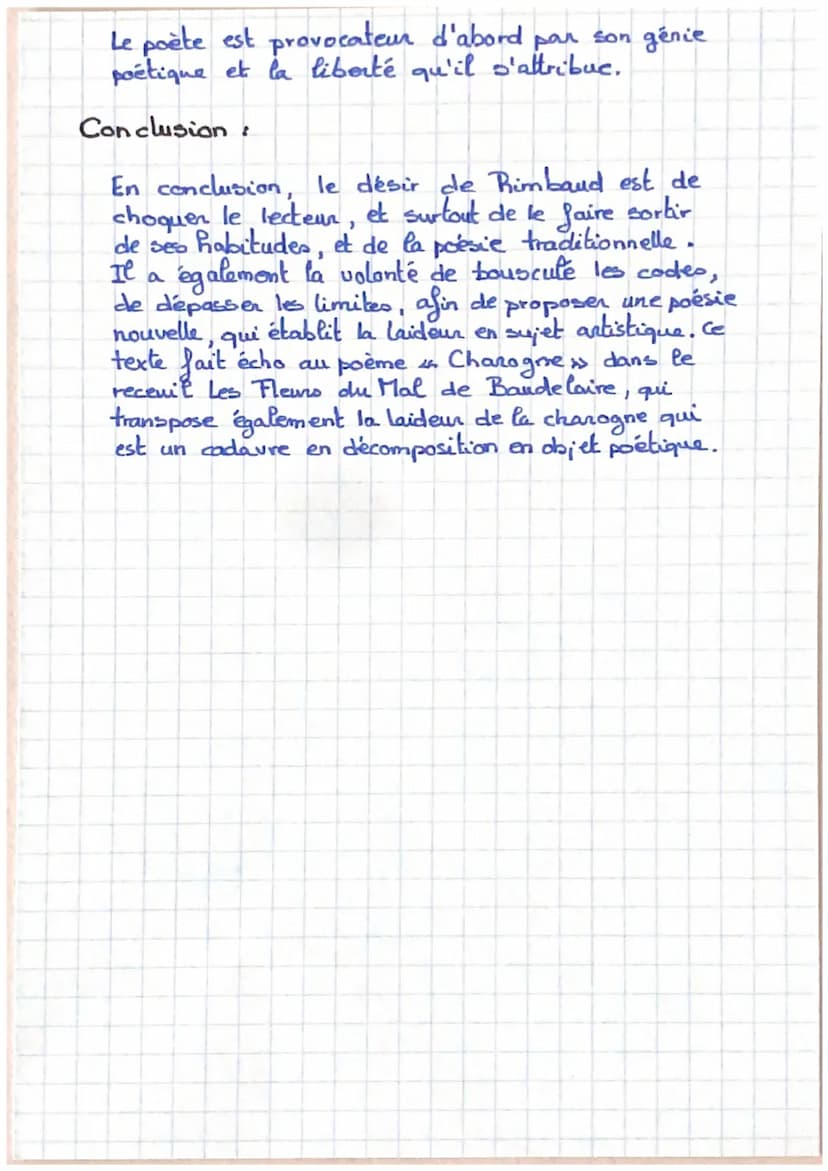 Le poète est provocateur d'abord par son génie
poétique et la liberté qu'il s'attribue.
Conclusion :
En conclusion, le désir de Rimbaud est de
choquer le lecteur, et surtout de le faire sortir
de ses habitudes, et de la poésie traditionnelle.
Il a également la volonté de bousculé les codes,
de dépasser les limites, afin de proposer une poésie
nouvelle, qui établit la laideur en sujet artistique. Ce
texte fait écho au poème « Charogne » dans le
receuil Les Fleurs du Mal de Baudelaire, qui
transpose également la laideur de la charogne qui
est un cadavre en décomposition en objet poétique.